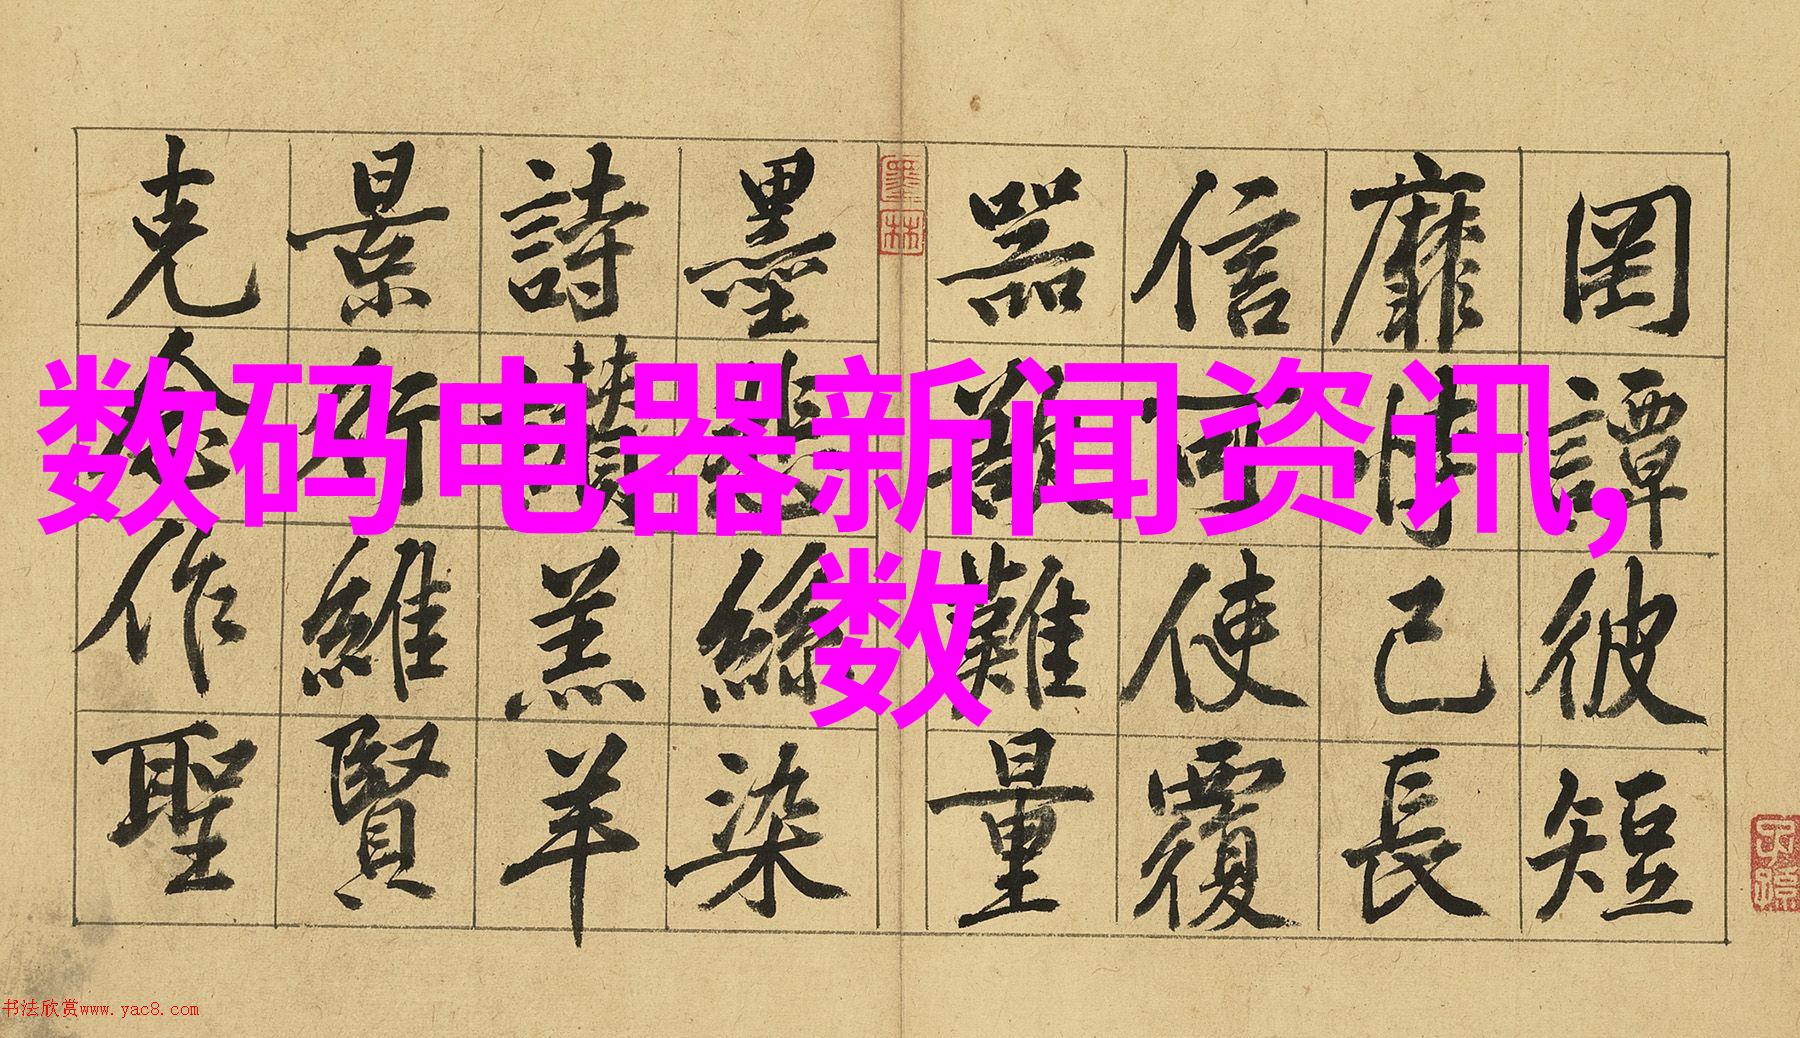 罔譚彼短
靡恃己長
信可使覆
器難量
墨悲絲染
詩讚羔羊
景行維賢
克念作聖
墨林
数码电器新闻资讯,
数
书法欣赏www.yac8.com